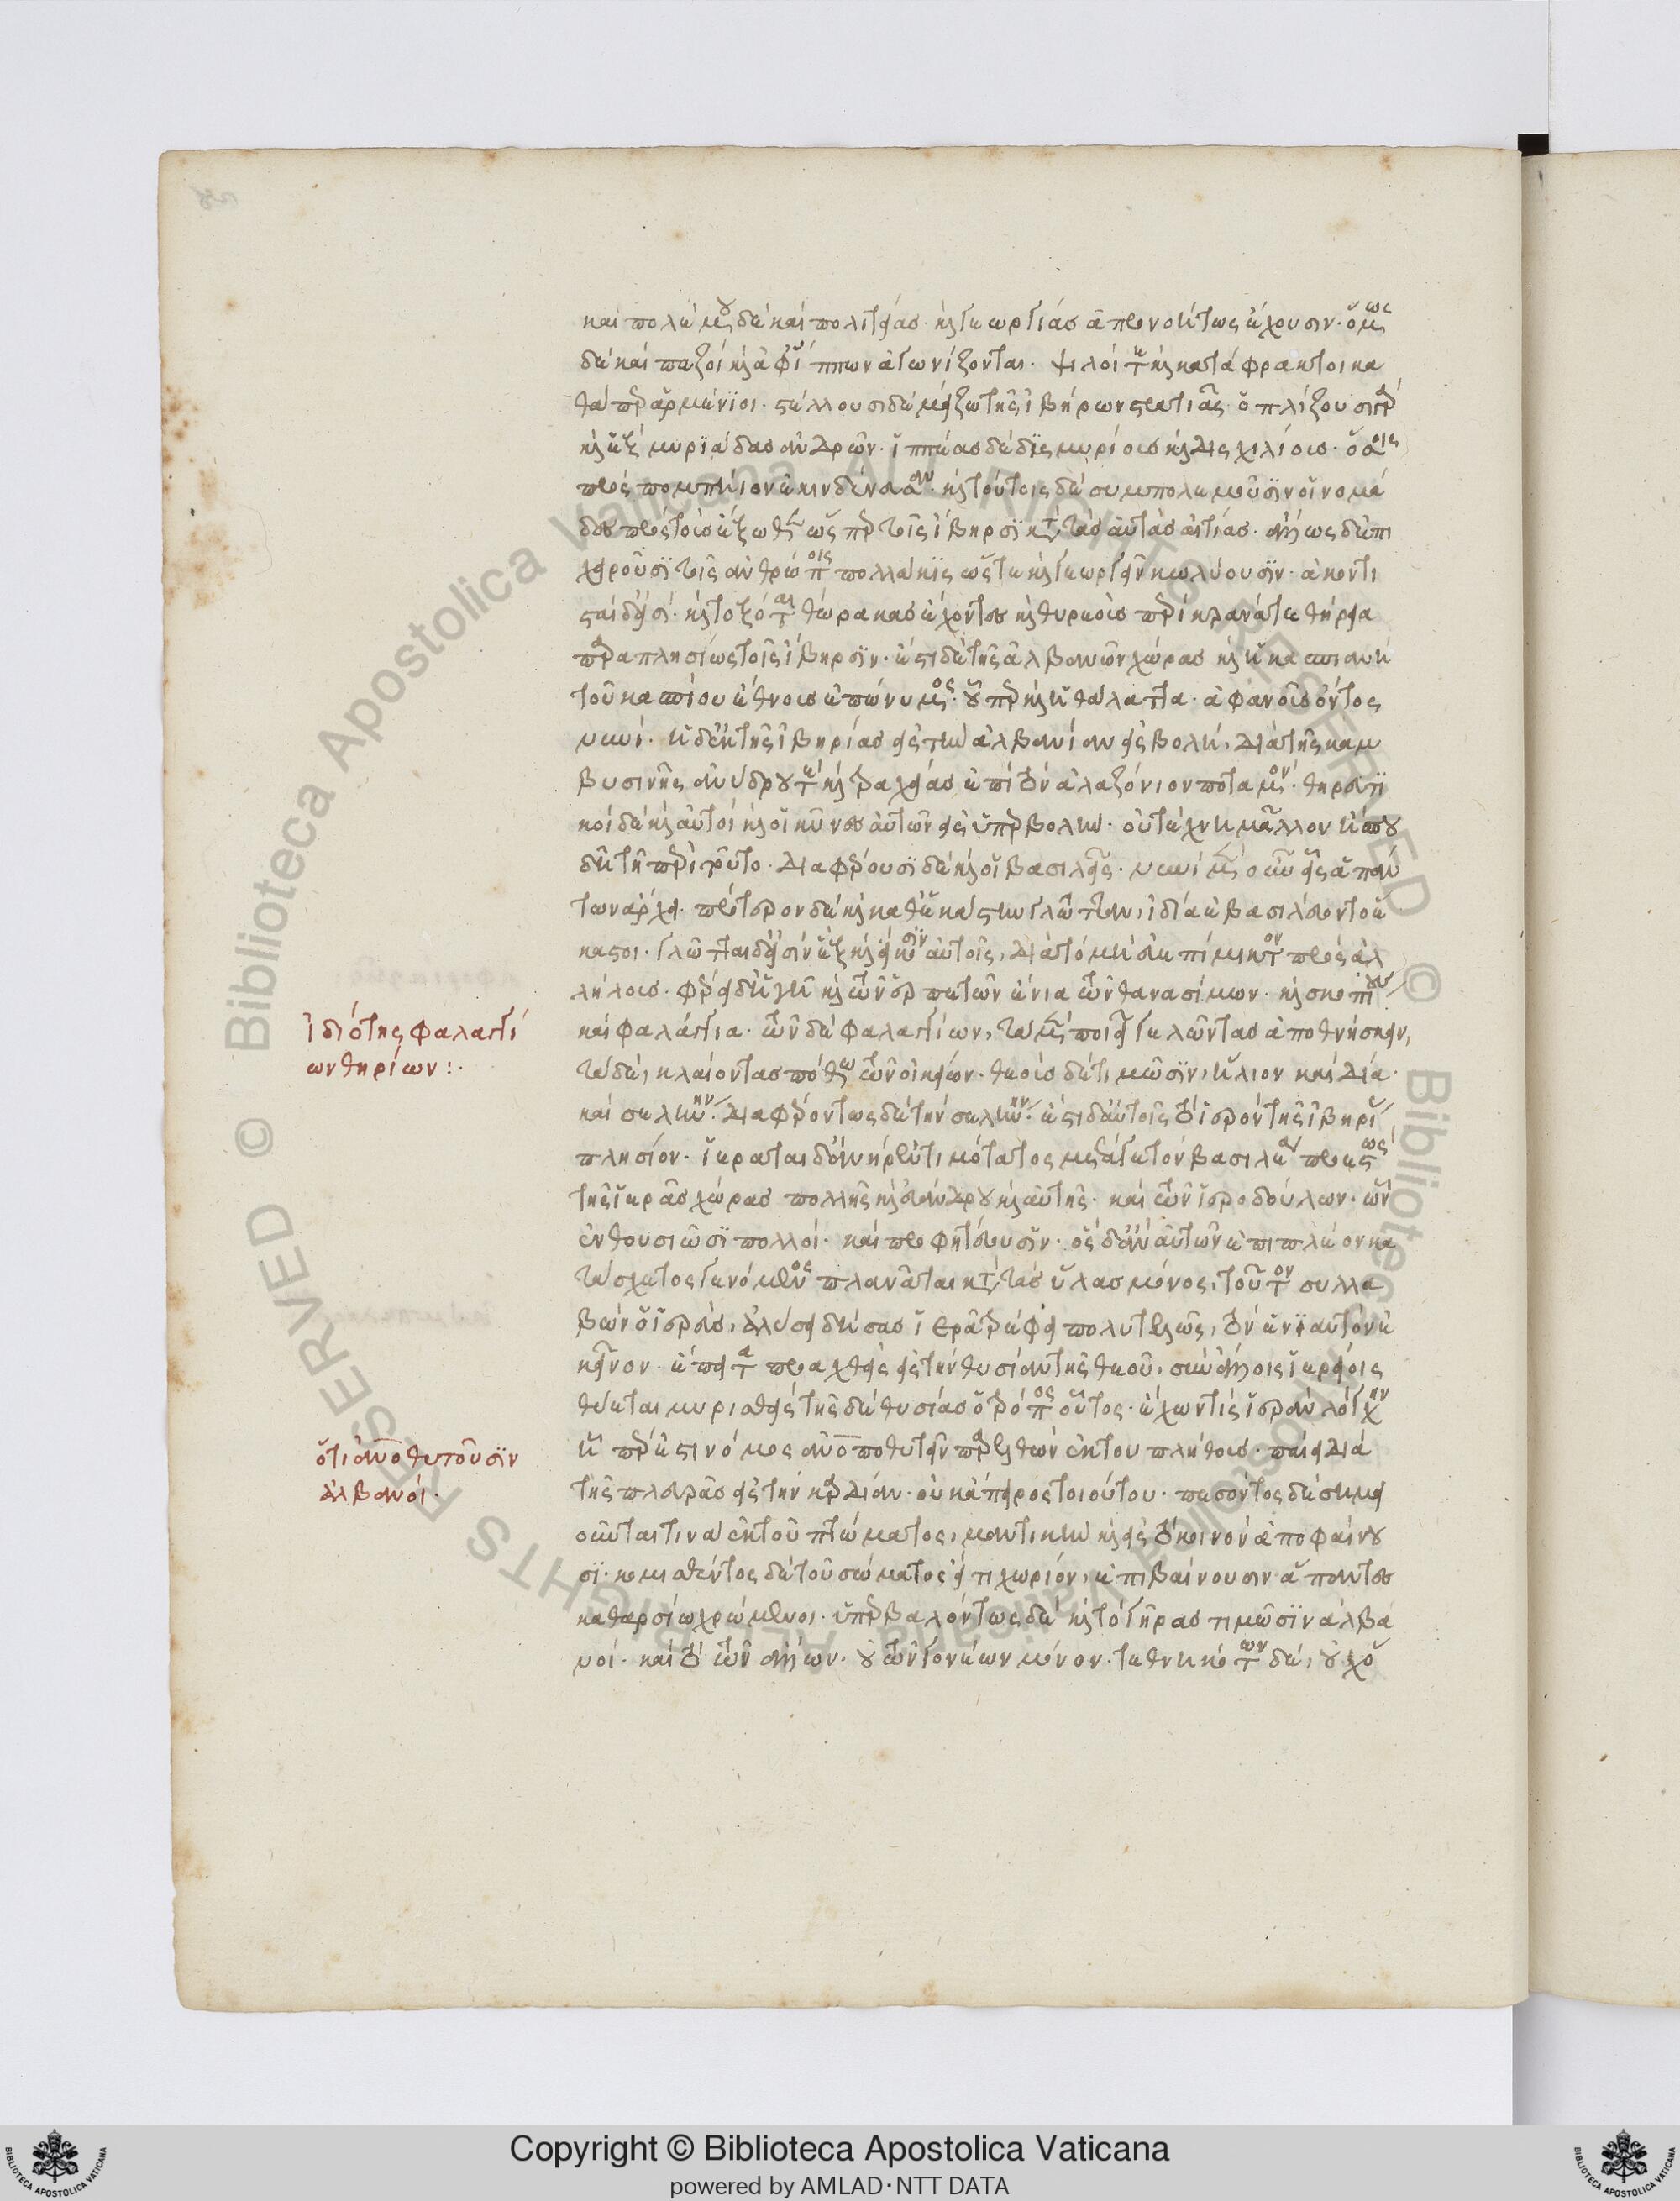 καὶ πολέμου δὲ καὶ πολιτείας· καὶ γεωργίας ἀπρονοήτως ἔχουσιν· ὅμως
δὲ καὶ πεζοὶ καὶ ἀφ' ἵππων ἀγωνίζονται· ψιλοί τε καὶ κατάφρακτοι κα
θάπερ ἀρμένιοι· στέλλουσι δὲ μείζω τῆς ἰβήρων στρατιᾶς· ὁπλίζουσι γὰρ
καὶ ἓξ μυριάδας ἀνδρῶν· ἱππέας δὲ δισμυρίους καὶ δισχιλίους· ὅσοις
πρὸς πομπήιον διεκινδύνευσαν· καὶ τούτοις δὲ συμπολεμοῦσιν οἱ νομά
δες πρὸς τοὺς ἔξωθεν ὥσπερ τοῖς ἴβηρσι κατὰ τὰς αὐτὰς αἰτίας· ἄλλως δ' ἐπι
χειροῦσι τοῖς ἀνθρώποις πολλάκις ὥστε καὶ γεωργεῖν κωλύουσιν· ἀκοντι
σταὶ δέ εἰσι· καὶ τοξόται θώρακας ἔχοντες καὶ θυρεοὺς περίκρανά τε θήρεια
παραπλησίως τοῖς ἴβηρσιν· ἔστι δὲ τῆς ἀλβανῶν χώρας καὶ ἡ κασπιανή
τοῦ κασπίου ἔθνους ἐπώνυμος· οὗπερ καὶ ἡ θάλαττα· ἀφανοῦς ὄντος
νυνί· ἡ δ' ἐκ τῆς ἰβηρίας εἰς τὴν ἀλβανίαν εἰσβολή, διὰ τῆς καμ
βυσηνῆς ἀνύδρου τε καὶ τραχείας ἐπὶ τὸν ἀλαζόνιον ποταμόν· θηρευτι
κοὶ δὲ καὶ αὐτοὶ καὶ οἱ κύνες αὐτῶν εἰς ὑπερβολήν· οὐ τέχνῃ μᾶλλον ἢ σπου
δῇ τῇ περὶ τοῦτο· διαφέρουσι δὲ καὶ οἱ βασιλεῖς· νυνὶ μὲν οὖν εἷς ἁπάν
των ἄρχει· πρότερον δὲ καὶ καθ' ἑκάστην γλῶτταν, ἰδίᾳ ἐβασιλεύοντο ἕ
καστοι· γλῶτται δέ εἰσιν ἓξ καὶ εἴκοσιν αὐτοῖς, διὰ τὸ μὴ εὐεπίμικτον πρὸς ἀλ
λήλους· φέρει δ' ἡ γῆ καὶ τῶν ἑρπετῶν ἔνια τῶν θανασίμων· καὶ σκορπίους
καὶ φαλάγγια· τῶν δὲ φαλαγγίων, τὰ μὲν ποιεῖ γελῶντας ἀποθνήσκειν,
τὰ δὲ, κλαίοντας πόθῳ τῶν οἰκείων· θεοὺς δὲ τιμῶσιν, ἥλιον καὶ δία·
καὶ σελήνην· διαφερόντως δὲ τὴν σελήνην· ἔστι δ' αὐτοῖς τὸ ἱερὸν τῆς ἰβηρίας
πλησίον· ἱερᾶται δ' ἀνὴρ ἐντιμότατος μετά γε τὸν βασιλέα προεστὼς
τῆς ἱερᾶς χώρας πολλῆς καὶ εὐάνδρου καὶ αὐτῆς· καὶ τῶν ἱεροδούλων· ὧν
ἐνθουσιῶσι πολλοί· καὶ προφητεύουσιν· ὃς δ' ἂν αὐτῶν ἐπιπλέον κα
τάσχετος γενόμενος πλανᾶται κατὰ τὰς ὕλας μόνος, τοῦτον συλλα
βὼν ὁ ἱερεὺς, ἁλύσει δήσας ἱερᾷ τρέφει πολυτελῶς, τὸν ἐνιαυτὸν ἐ
κεῖνον· ἔπειτα προαχθεὶς εἰς τὴν θυσίαν τῆς θεοῦ, σὺν ἄλλοις ἱερείοις
θύεται μυρισθεὶς τῆς δὲ θυσίας ὁ τρόπος οὗτος· ἔχων τὶς ἱερὰν λόγχην
ᾗ πέρ ἐστι νόμος ἀνθρωποθυτεῖν παρελθὼν ἐκ τοῦ πλήθους· παίει διὰ
τῆς πλευρᾶς εἰς τὴν καρδίαν· οὐκ ἄπειρος τοιούτου· πεσόντος δὲ σημει
οῦνταί τινα ἐκ τοῦ πτώματος, μαντικὴν καὶ εἰς τὸ κοινὸν ἀποφαίνου
σι· κομισθέντος δὲ τοῦ σώματος ἔς τι χωρίον, ἐπιβαίνουσιν ἅπαντες
καθαρσίῳ χρώμενοι· ὑπερβαλόντως δὲ καὶ τὸ γῆρας τιμῶσιν ἀλβα
νοί· καὶ τὸ τῶν ἄλλων· οὐ τῶν γονέων μόνον· τεθνηκότων δὲ, οὐχ ὅ
ἰδιότης φαλαγγί
ων θηρίων:·
ὅτι ἀνθρωποθυτοῦσιν
ἀλβανοί·